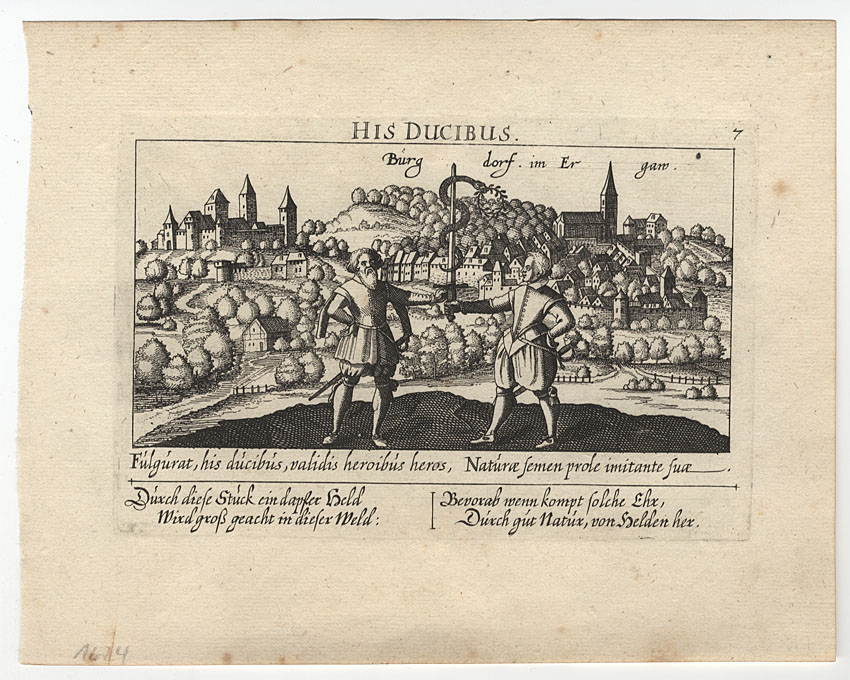 HIS DUCIBUS.
7
Burg dorf. im Er gaw.
Fulgurat, his ducibus, validis heroibus heros, Naturæ semen prole imitante suæ.
Durch diese Stuck ein dapfer Held
Wird groß geacht in dieser Weld:
Bevorab wenn kompt solche Ehr,
Durch gut Natur, von Helden her.